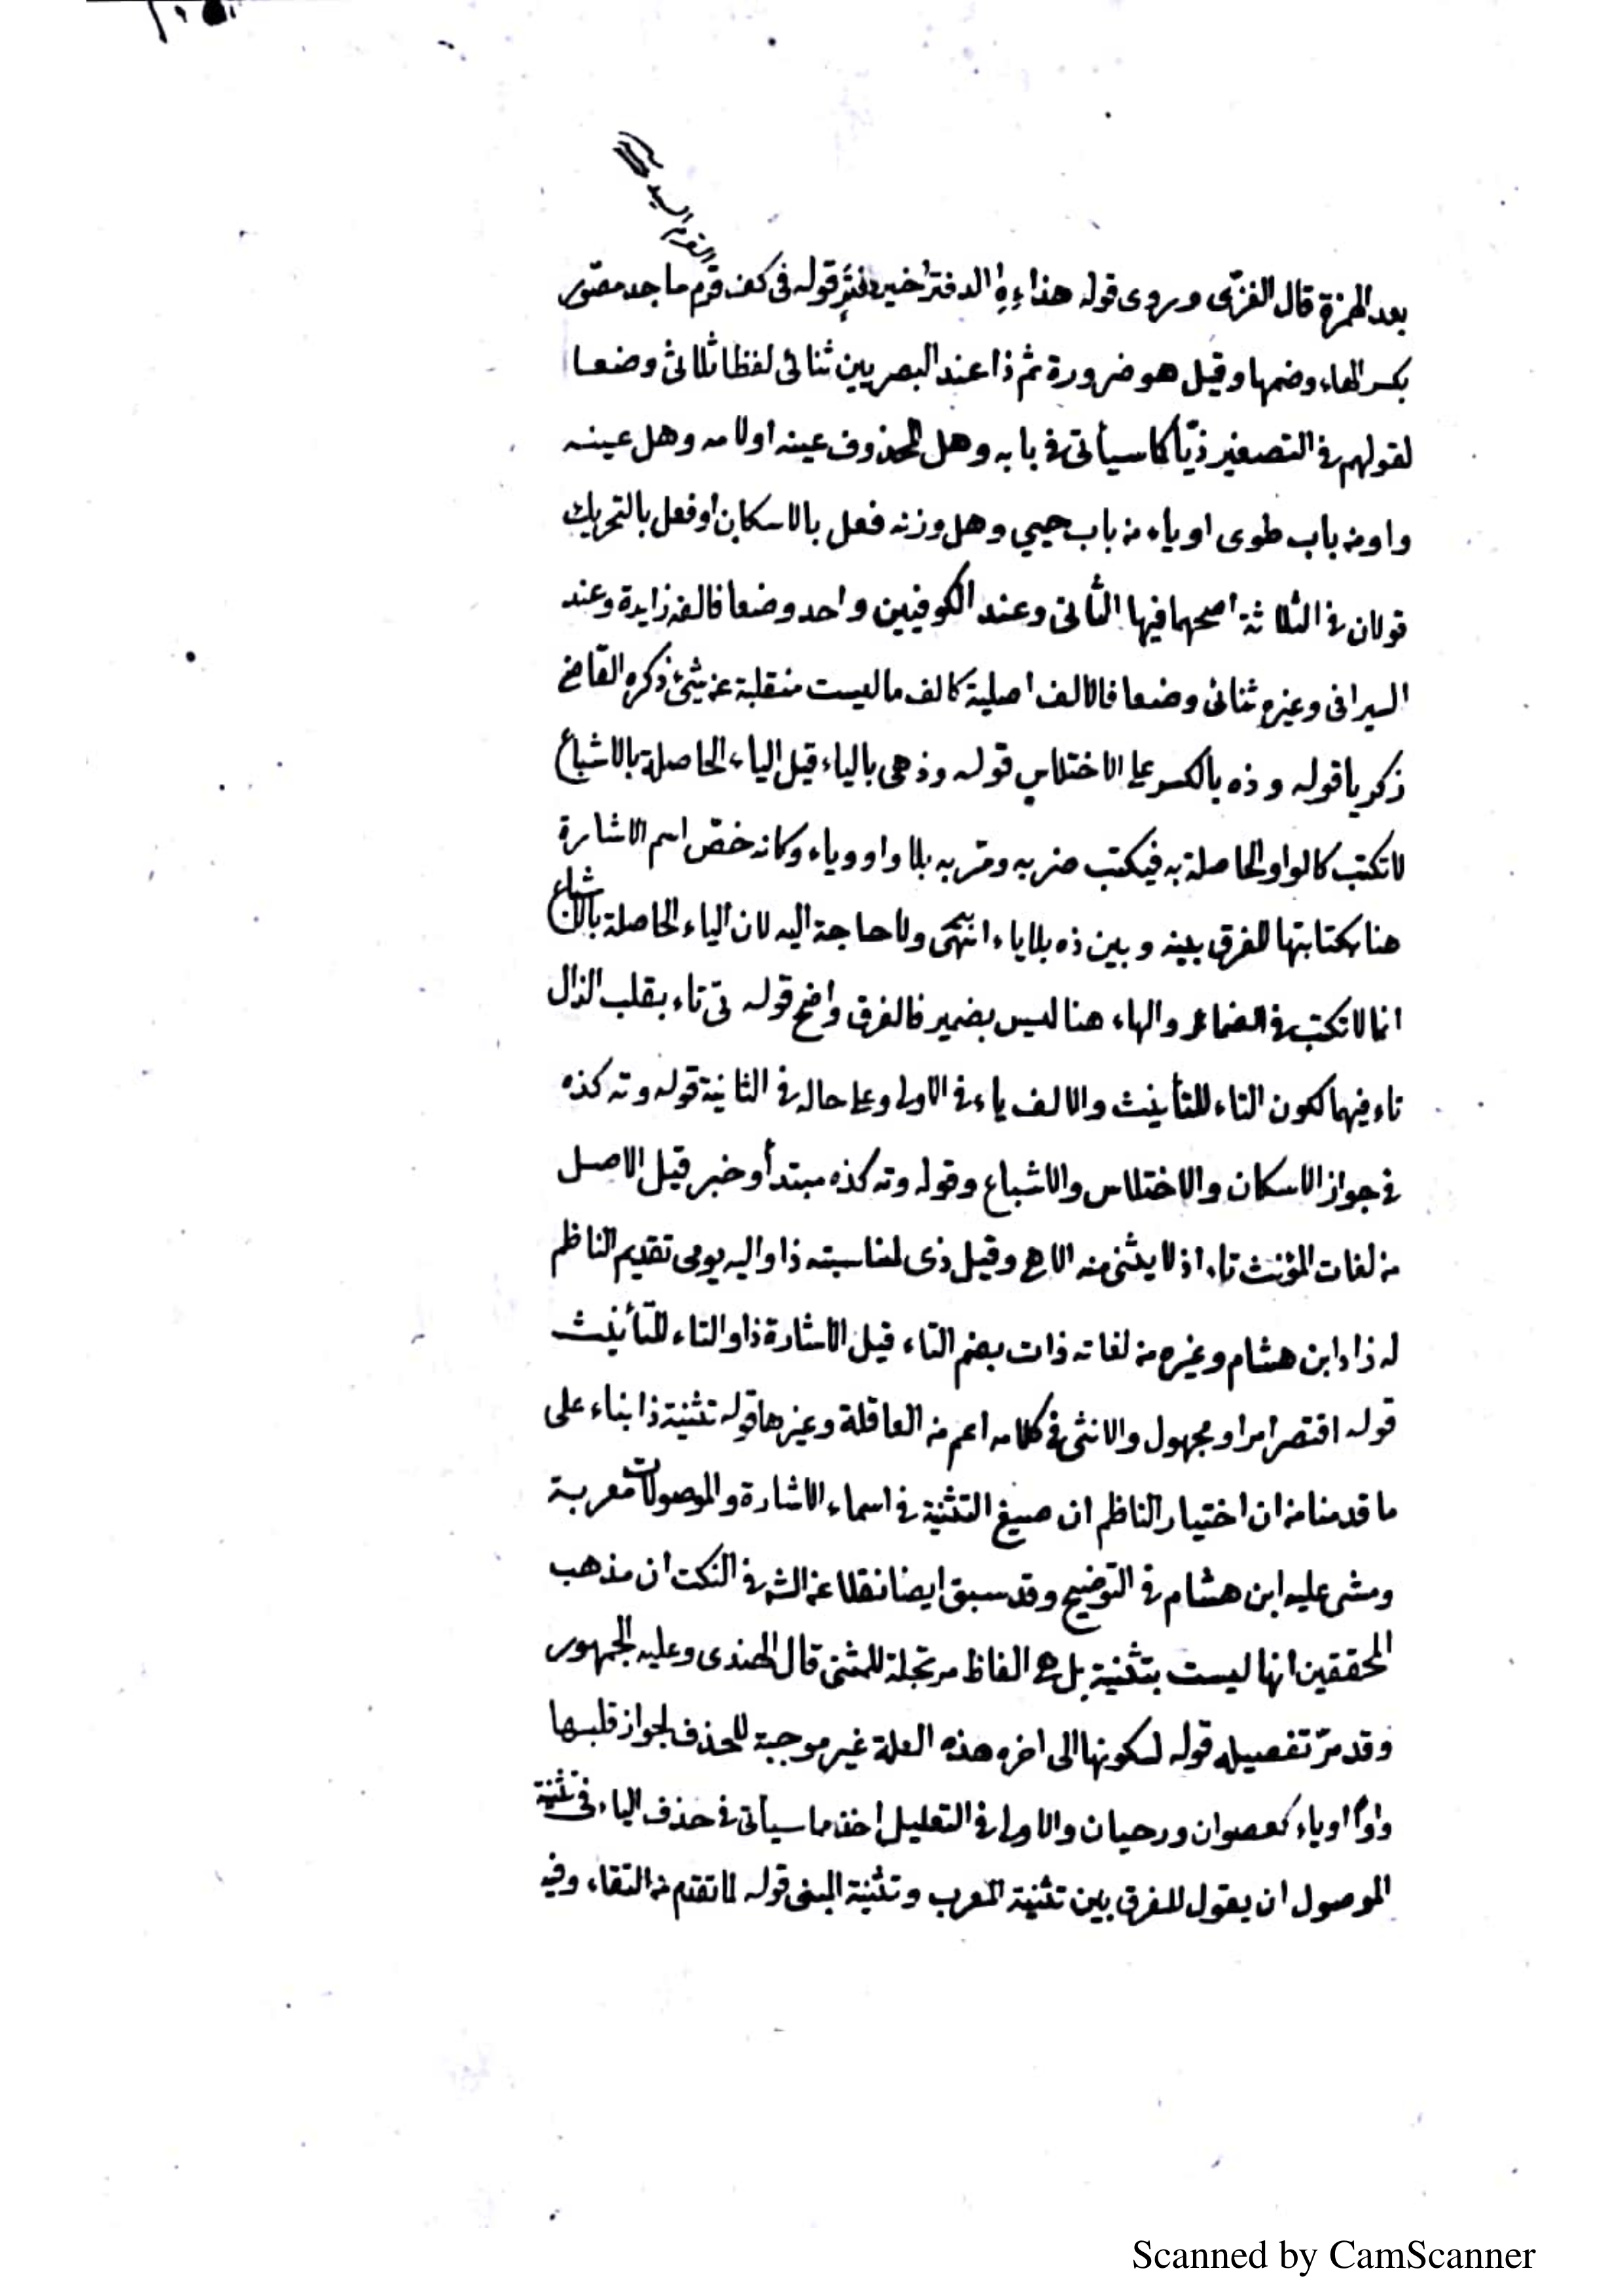 القرم السيد
بعد الهمزة قال الغزى وروى قوله هذاءِهِ الدفتر خير دفتر قوله فى كف قرم ماجد مصور
بكسر الهاء وضمها وقيل هو ضرورة ثم ذا عند البصريين ثنائى لفظا ثلاثى وضعا
لقولهم فى التصغير ذيّا كما سيأتى فى بابه وهل المحذوف عينه اولامه وهل عينه
واو من باب طوى او ياء من باب حيي وهل وزنه فعل بالاسكان او فعل بالتحريك
قولان فى الثلاثة اصحهما فيها الثانى وعند الكوفيين واحد وضعا فالفه زايدة وعند
السيرافى وغيره ثنائى وضعا فالالف اصلية كالف ما ليست منقلبة عن شئ ذكره القاضى
زكريا قوله وذه بالكسر على الاختلاس قوله وذهى بالياء قيل الياء الحاصلة بالاشباع
لا تكتب كالواو الحاصلة به فيكتب ضربه ومرّ به بلا واو وياء وكانه خصّ اسم الاشارة
هنا بكتابتها للفرق بينه وبين ذه بلا ياء انتهى ولا حاجة اليه لان الياء الحاصلة بالاشباع
انما لا تكتب فى الضمائر والهاء هنا ليس بضمير فالفرق واضح قوله تى تاء بقلب الذال
تاء فيهما لكون التاء للتأنيث والالف ياء فى الاولى وعلى حاله فى الثانية قوله وته كذه
فى جواز الاسكان والاختلاس والاشباع وقوله وته كذه مبتدأ وخبر قيل الاصل
من لغات المؤنث تاء اذ لا يثنى منه الا هى وقيل ذى لمناسبته ذا واليه يومى تقديم الناظم
له زاد ابن هشام وغيره من لغاته ذات بضم التاء قيل الاشارة ذا والتاء للتأنيث
قوله اقتصر امر او مجهول والانثى فى كلامه اعم من العاقلة وغيرها قوله تثنية ذا بناء على
ما قدمنا من ان اختيار الناظم ان صيغ التثنية فى اسماء الاشارة والموصولات معربة
ومشى عليه ابن هشام فى التوضيح وقد سبق ايضا نقلا عن الشه فى النكت ان مذهب
المحققين انها ليست بتثنية بل هى الفاظ مرتجلة للمثنى قال الهندى وعليه الجمهور
وقد مرّ تفصيله قوله لسكونها الى اخره هذه العلة غير موجبة للحذف لجواز قلبها
واوًا او ياء كعصوان ورحيان والاولى فى التعليل اخذ مما سيأتى فى حذف الياء فى تثنية
الموصول ان يقول للفرق بين تثنية المعرب وتثنية المبنى قوله لما تقدم من التقاء وفيه
Scanned by CamScanner